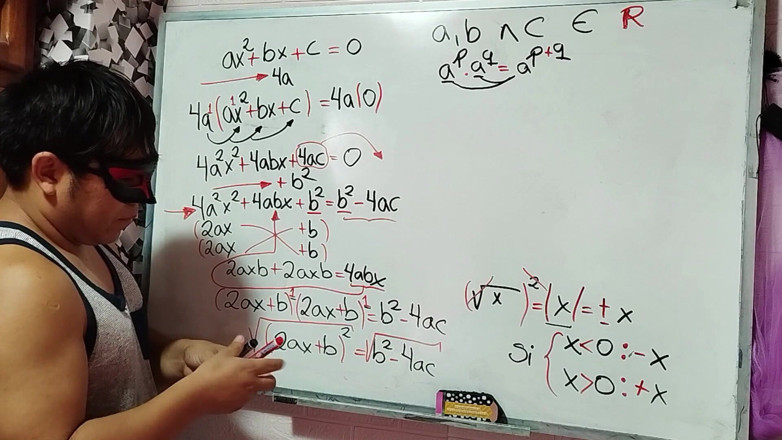 ax²+bx+c=0
4a
4a¹(ax¹²+bx+c)=4a(0)
4a²x²+4abx+4ac=0
+b²
4a²x²+4abx+b²=b²-4ac
(2ax +b)
(2ax +b)
2axb+2axb=4abx
(2ax+b)¹(2ax+b)¹=b²-4ac
√(2ax+b)²=√b²-4ac
a,b ∧ c ∈ R
aᵖ·a^q=a^p+q
(√x)²=|x|=±x
Si { x<0:-x
x>0:+x